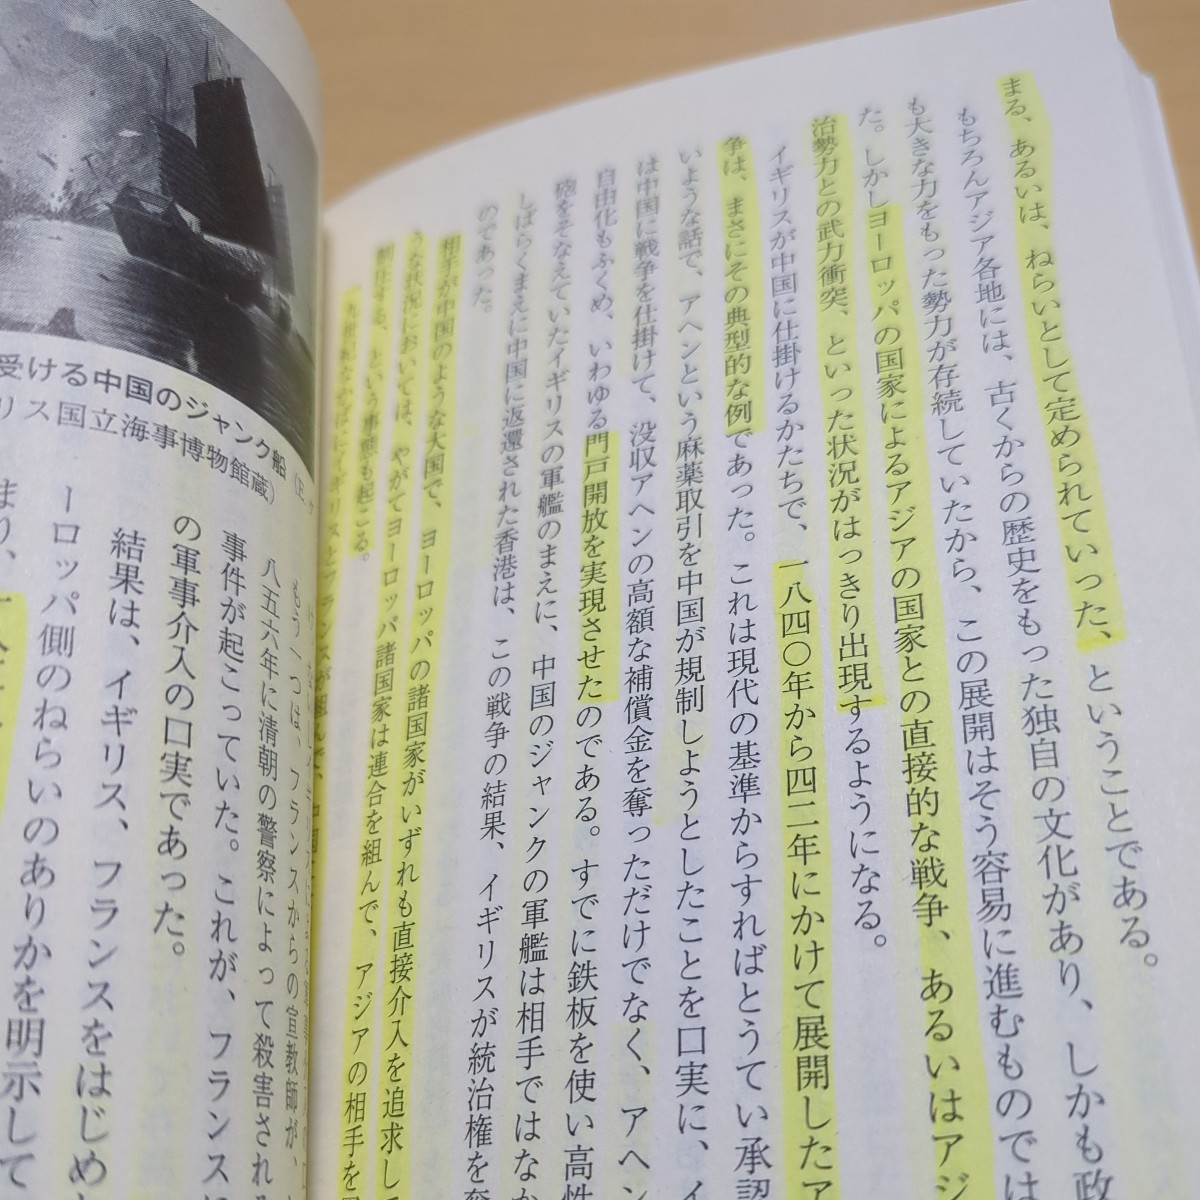 まる、あるいは、ねらいとして定められていった、ということである。
もちろんアジア各地には、古くからの歴史をもった独自の文化があり、しかも政
も大きな力をもった勢力が存続していたから、この展開はそう容易に進むものでは
た。しかしヨーロッパの国家によるアジアの国家との直接的な戦争、あるいはアジ
治勢力との武力衝突、といった状況がはっきり出現するようになる。
イギリスが中国に仕掛けるかたちで、一八四〇年から四二年にかけて展開したア
争は、まさにその典型的な例であった。これは現代の基準からすればとうてい承認
いような話で、アヘンという麻薬取引を中国が規制しようとしたことを口実に、イ
は中国に戦争を仕掛けて、没収アヘンの高額な補償金を奪っただけでなく、アヘン
自由化もふくめ、いわゆる門戸開放を実現させたのである。すでに鉄板を使い高性
砲をそなえていたイギリスの軍艦のまえに、中国のジャンクの軍艦は相手ではなか
しばらくまえに中国に返還された香港は、この戦争の結果、イギリスが統治権を奪
のであった。
相手が中国のような大国で、ヨーロッパの諸国家がいずれも直接介入を追求して
うな状況においては、やがてヨーロッパ諸国家は連合を組んで、アジアの相手を
制圧する、という事態も起こる。
九世紀なかばにイギリスとフランスが組んで、中国
受ける中国のジャンク船
リス国立海事博物館蔵）
もう一つは、フランスからの宣教師が、
八五六年に清朝の警察によって殺害され
事件が起こっていた。これが、フランス
の軍事介入の口実であった。
結果は、イギリス、フランスをはじめ
ーロッパ側のねらいのありかを明示して
まり、一